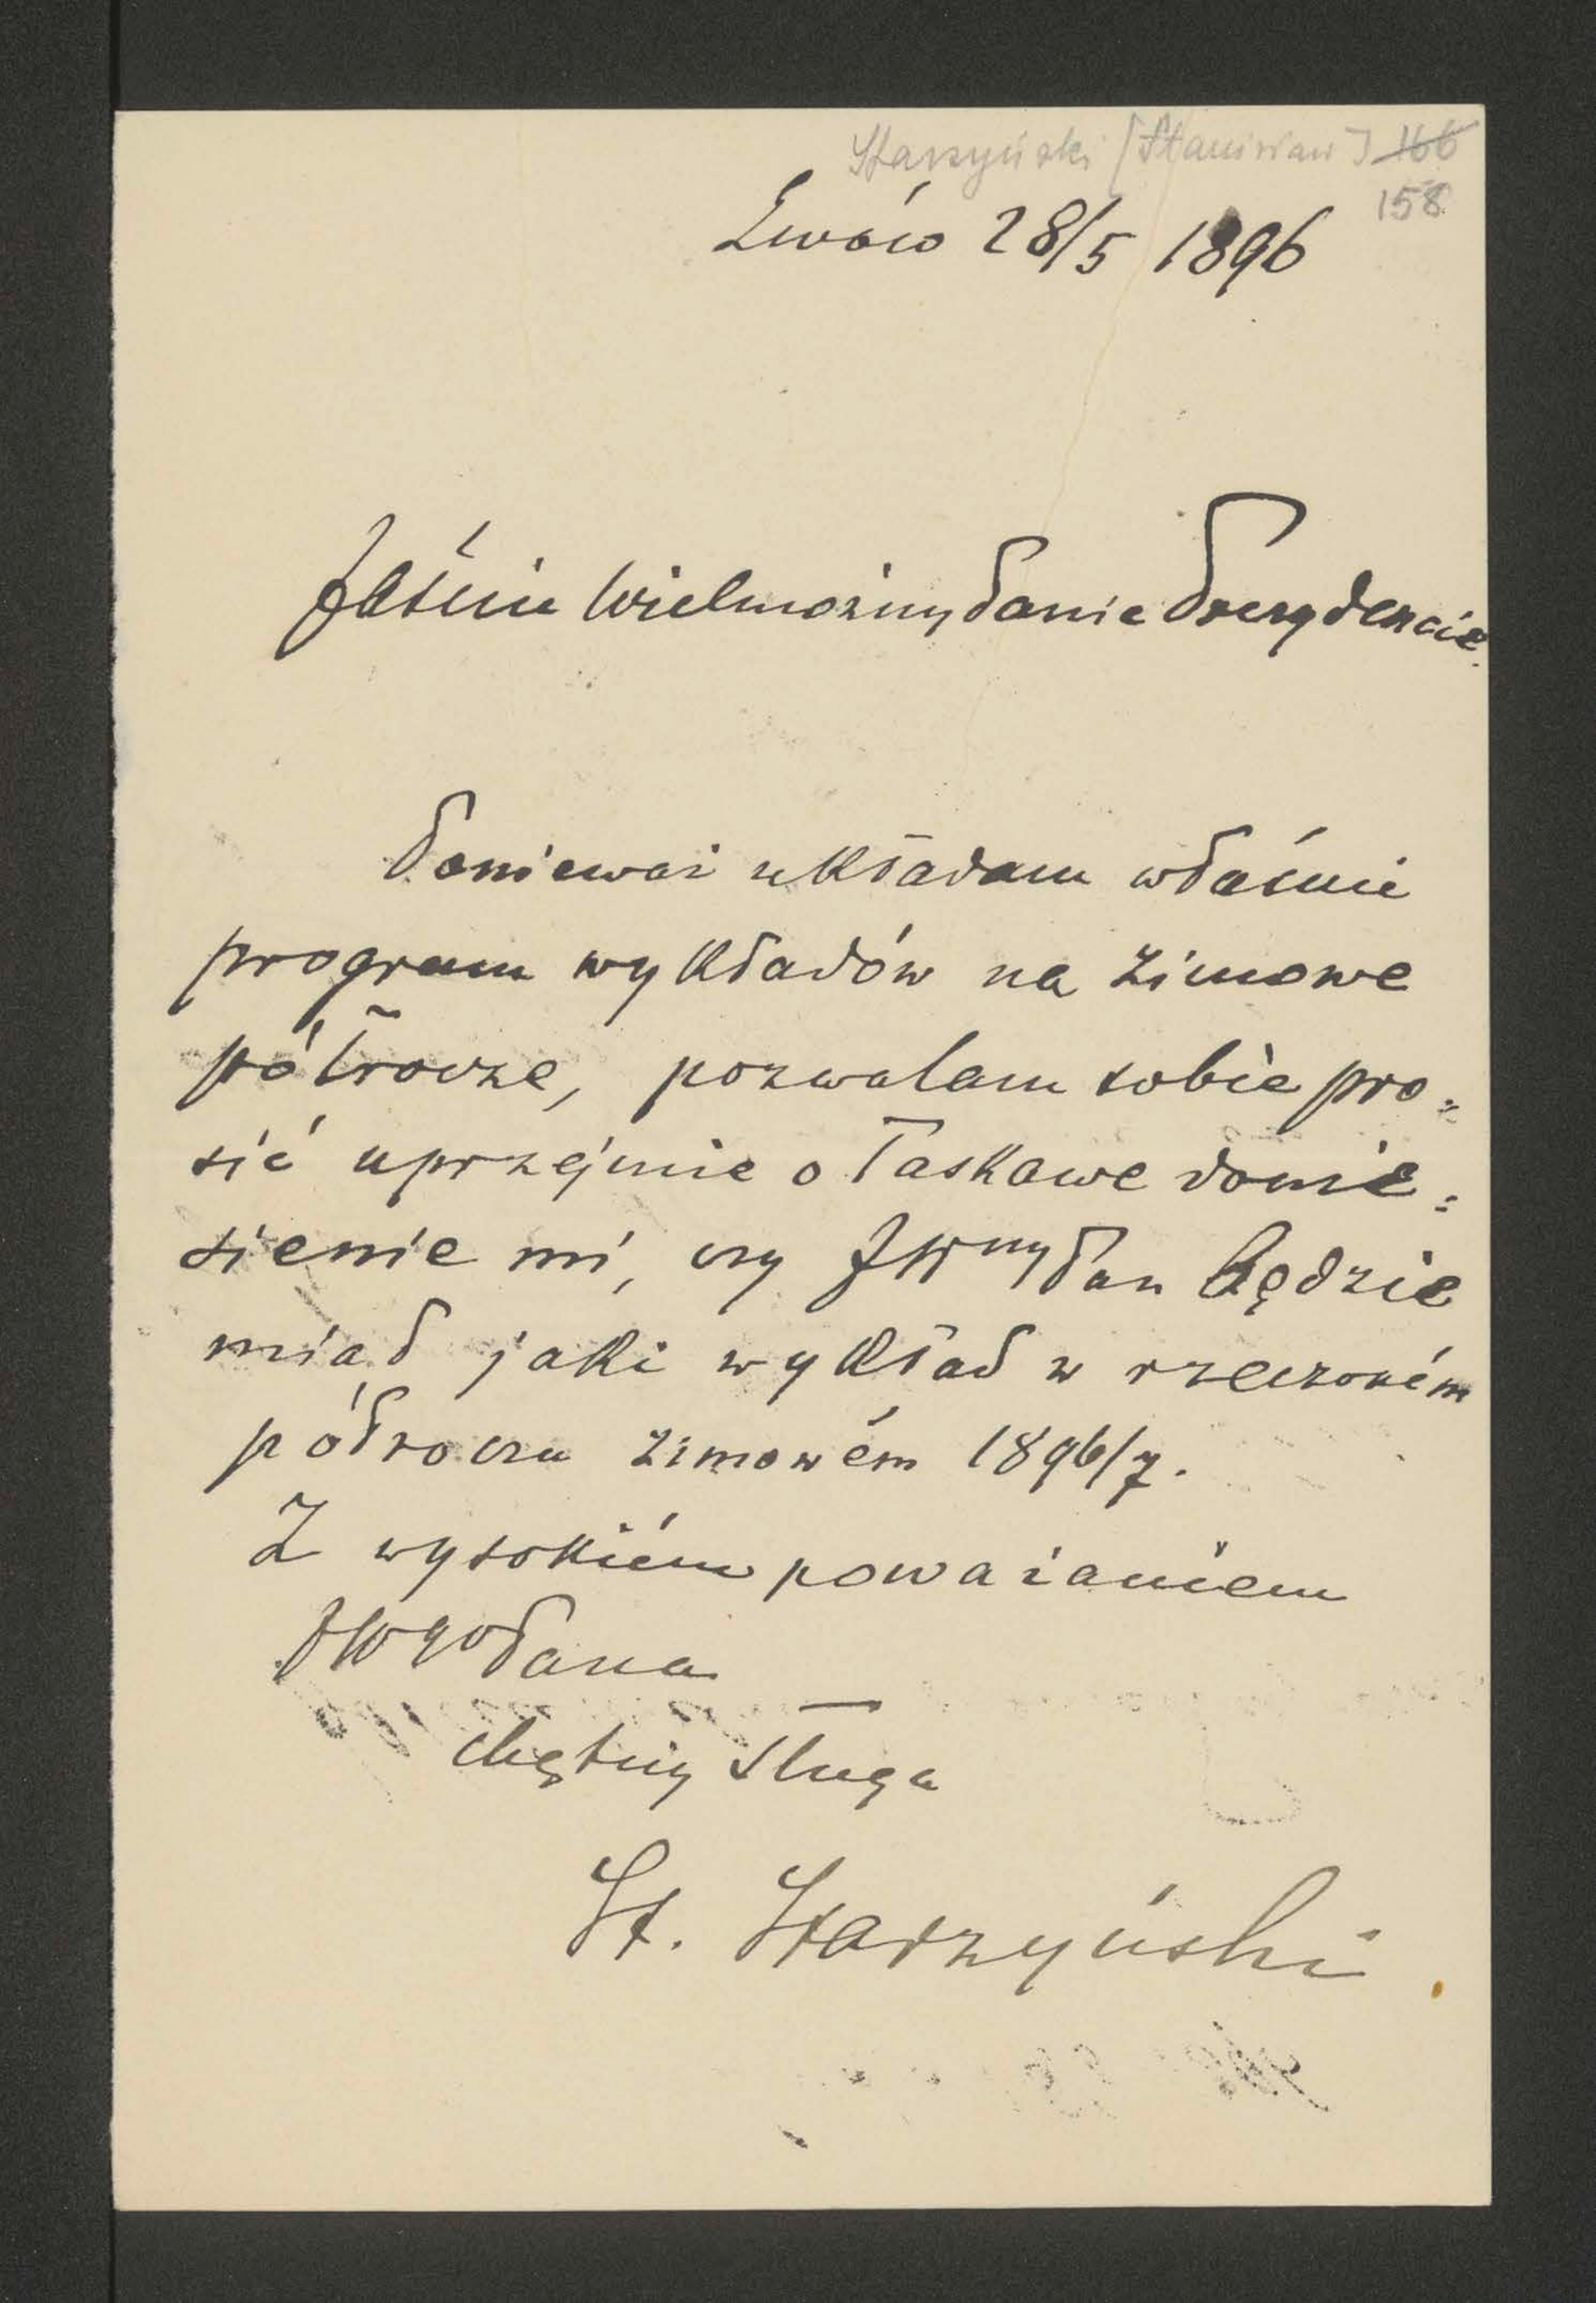 Starzyński [Stanisław] 166
158
Lwów 28/5 1896
Jaśnie Wielmożny Panie Prezydencie
Ponieważ układam właśnie
program wykładów na zimowe
półrocze, pozwalam sobie pro=
sić uprzejmie o łaskawe donie=
sienie mi, czy JWny Pan będzie
miał jaki wykład w rzeczoném
półroczu zimowém 1896/7.
Z wysokiém poważaniem
JWgo Pana
chętny sługa
St. Starzyński